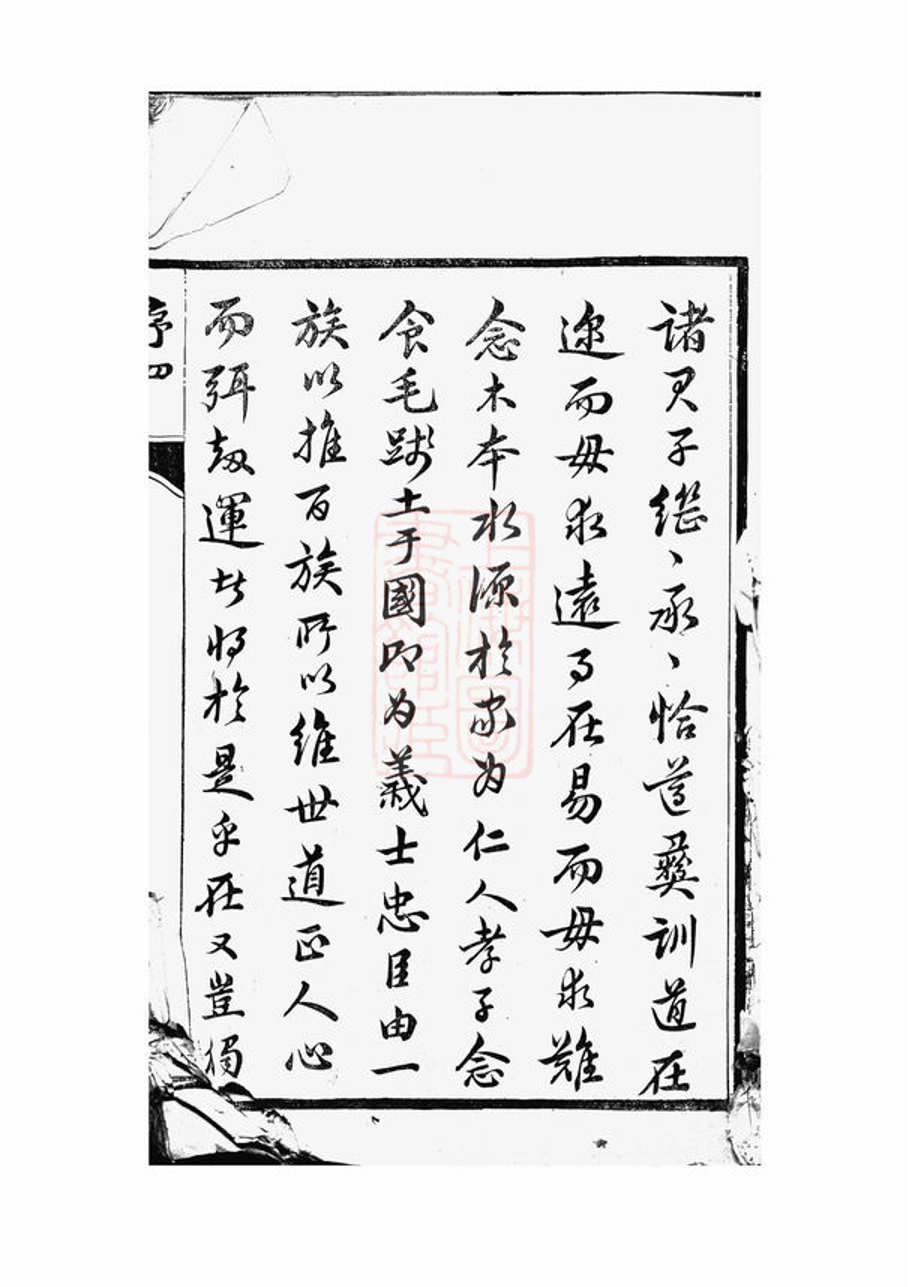 諸君子繼〻承〻恰遵彝訓道在
邇而毋求遠事在易而毋求難
念木本水源於家為仁人孝子念
食毛踐土于國即為義士忠臣由一
族以推百族所以維世道正人心
而弭劫運者將於是乎在又豈獨
序四